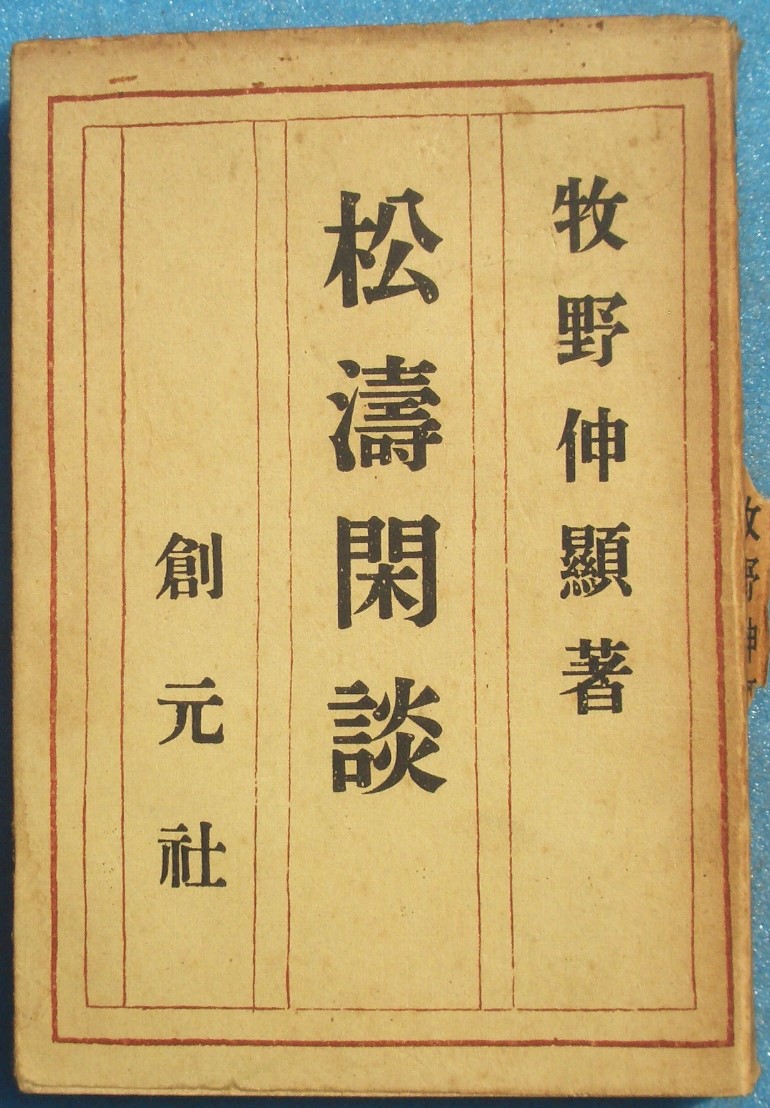 牧野伸顯著
松濤閑談
創元社
牧野伸